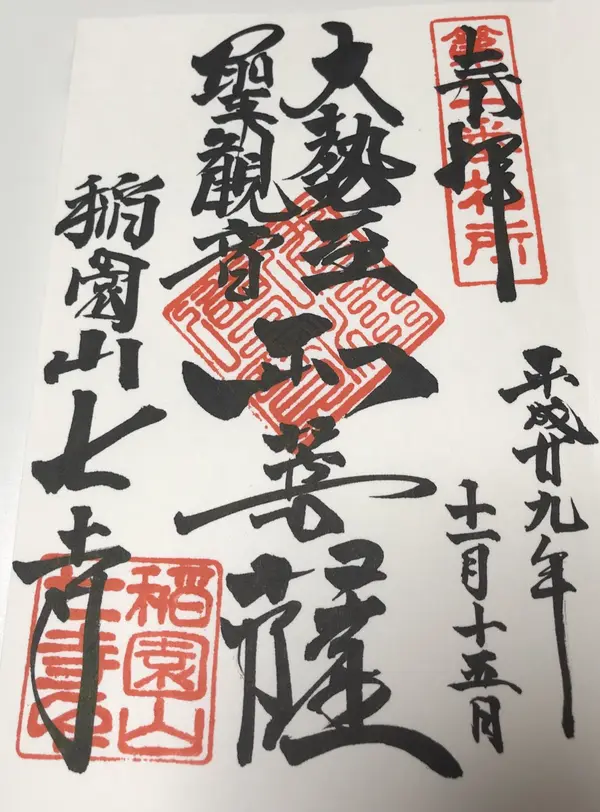 奉拝
平成廿九年
十一月十五日
大勢至
聖観音
両菩薩
稲園山七寺
稲園山